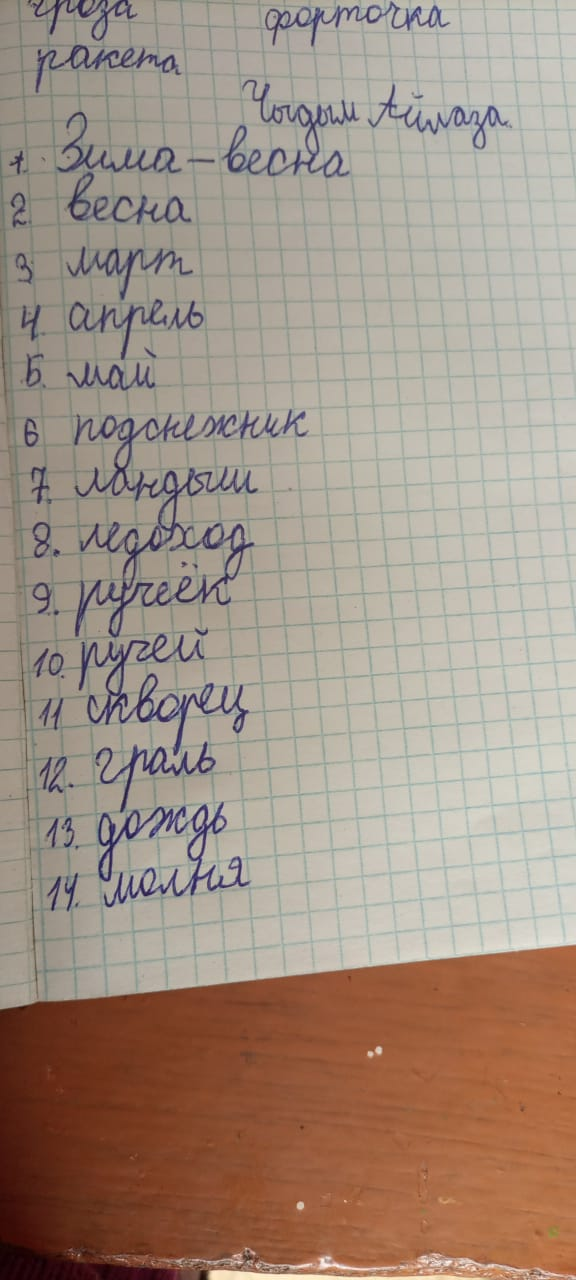 гроза форточка
ракета
Чыдым Айлаза.
1. Зима – весна
2. весна
3. март
4. апрель
5. май
6 подснежник
7. ландыш
8. ледоход
9. ручеёк
10. ручей
11 скворец
12. граль
13. дождь
14. молня